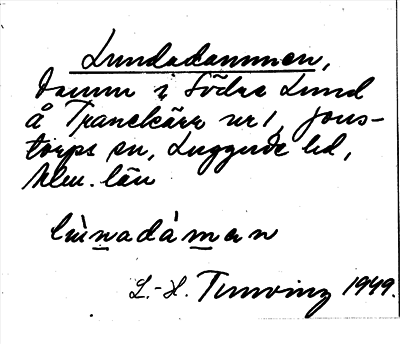 Lundadammen,
Damm i Södra Lund
å Tranekärr nr 1, Jons-
torps sn, Luggude hd,
Mlm. län
lùnadámen
L.-H. Tunving 1949.